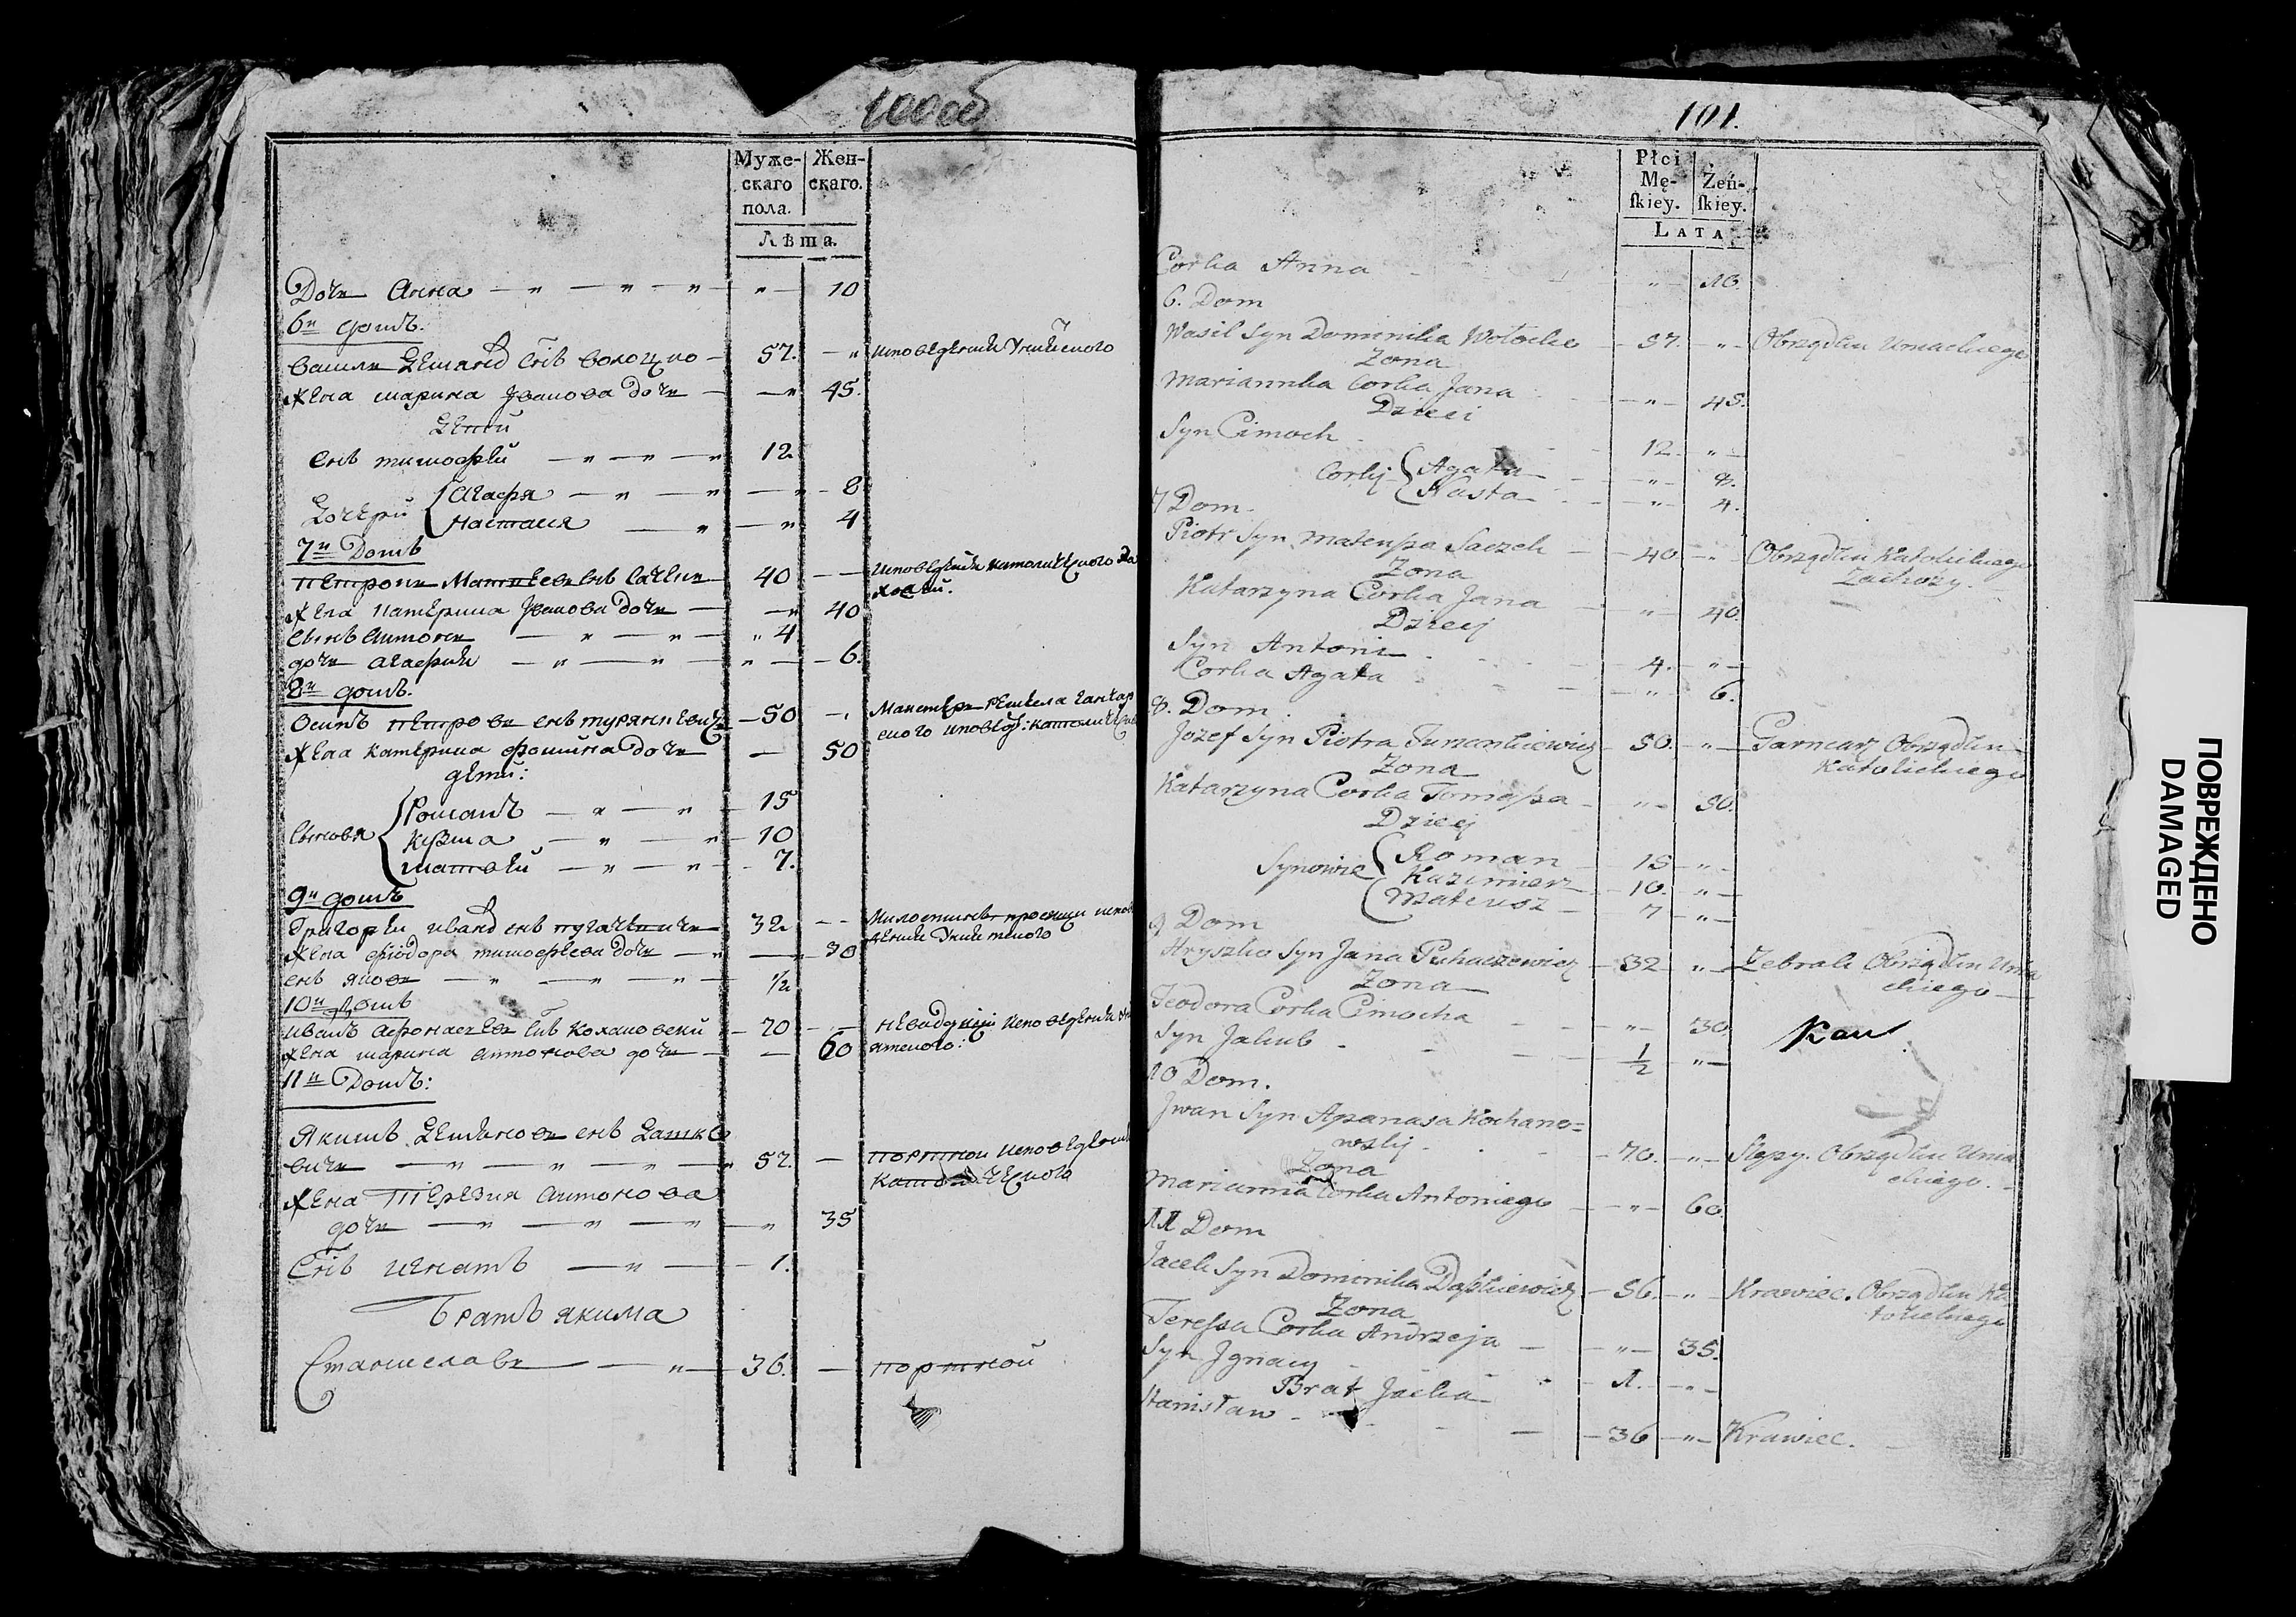 100об
Муже-
скаго
пола.
Жен-
скаго.
Лѣта.
Дочь Анна 10
6й домъ.
Василь Демянов снъ Волоцко 57. Исповедения Униятского
Жена Марина Иванова дочь 45.
Дети
Снъ Тимофей 12
Дочери Агафя 8
Настася 4
7й Домъ
Петронь Матвеевъ снъ Саченк 40 Исповедения католицкого За
хожий.
Жена Катерина Иванова дочь 40
Сынъ Антонь 4
дочь Агафия 6.
8й домъ.
Осипъ Петровъ снъ 50
Жена Катерина Фомина дочь 50
дети:
Сыновя Романъ 15
Кузма 10
Матвей 7.
9й домъ
Григорей Иванов снъ Пугачевичь 32
Жена Фіодора Тимофеева дочь 30
снъ Яковъ 1/2
10й домъ
Иванъ Афонасевъ снъ Кохановски 70
Жена Марина Антонова дочь 60
11й Домъ:
Якимъ Деминовъ снъ Дашке
вичь 57. портной Исповедения
Католического
Жена Терезия Антонова
дочь 35
Снъ Игнатъ 1.
Братъ Якима
Станиславъ 36. портной
101.
Płci
Mę-
ſkiey.
Żeń-
ſkiey.
LATA
Corka Anna 10.
6. Dom
Wasil Syn Dominika Wołocko 57. Obrządku Uniackiego
Zona
Mariannka Corka Jana 45.
Dzieci
Syn Cimoch 12
Corky Agata 8.
Nasta 4.
7 Dom.
Piotr Syn Mateusza Saczek 40 Obrządku Katolickiego
Zachozy.
Zona
Katarzyna Corka Jana 40.
Dziecy
Syn Antoni 4.
Corka Agata 6.
8. Dom.
Jozef Syn Piotra 50. Garncarz Obrządku
Katolickiego
Zona
Katarzyna Corka Tomasza 50.
Dziecy
Synowie Roman 15
Kazimierz 10.
Mateusz 7
9 Dom
Hryszko Syn Jana Puhaczewicz 32 Zebrak Obrządku Unia
ckiego
Zona
Teodora Corka Cimocha 30.
Syn Jakub 1/2
10 Dom.
Jwan Syn Apanasa Kochano=
wsky 70. Slepy. Obrządku Unia
ckiego.
Zona
Marianna Corka Antoniego 60.
11 Dom
Jacek Syn Dominika Daszkiewicz 56. Krawiec. Obrządku Ka
tolickiego
Zona
Teressa Corka Andrzeja 35.
Syn Jgnacy 1.
Brat Jacka
Stanisław 36 Krawiec.
ПОВРЕЖДЕНО
DAMAGED